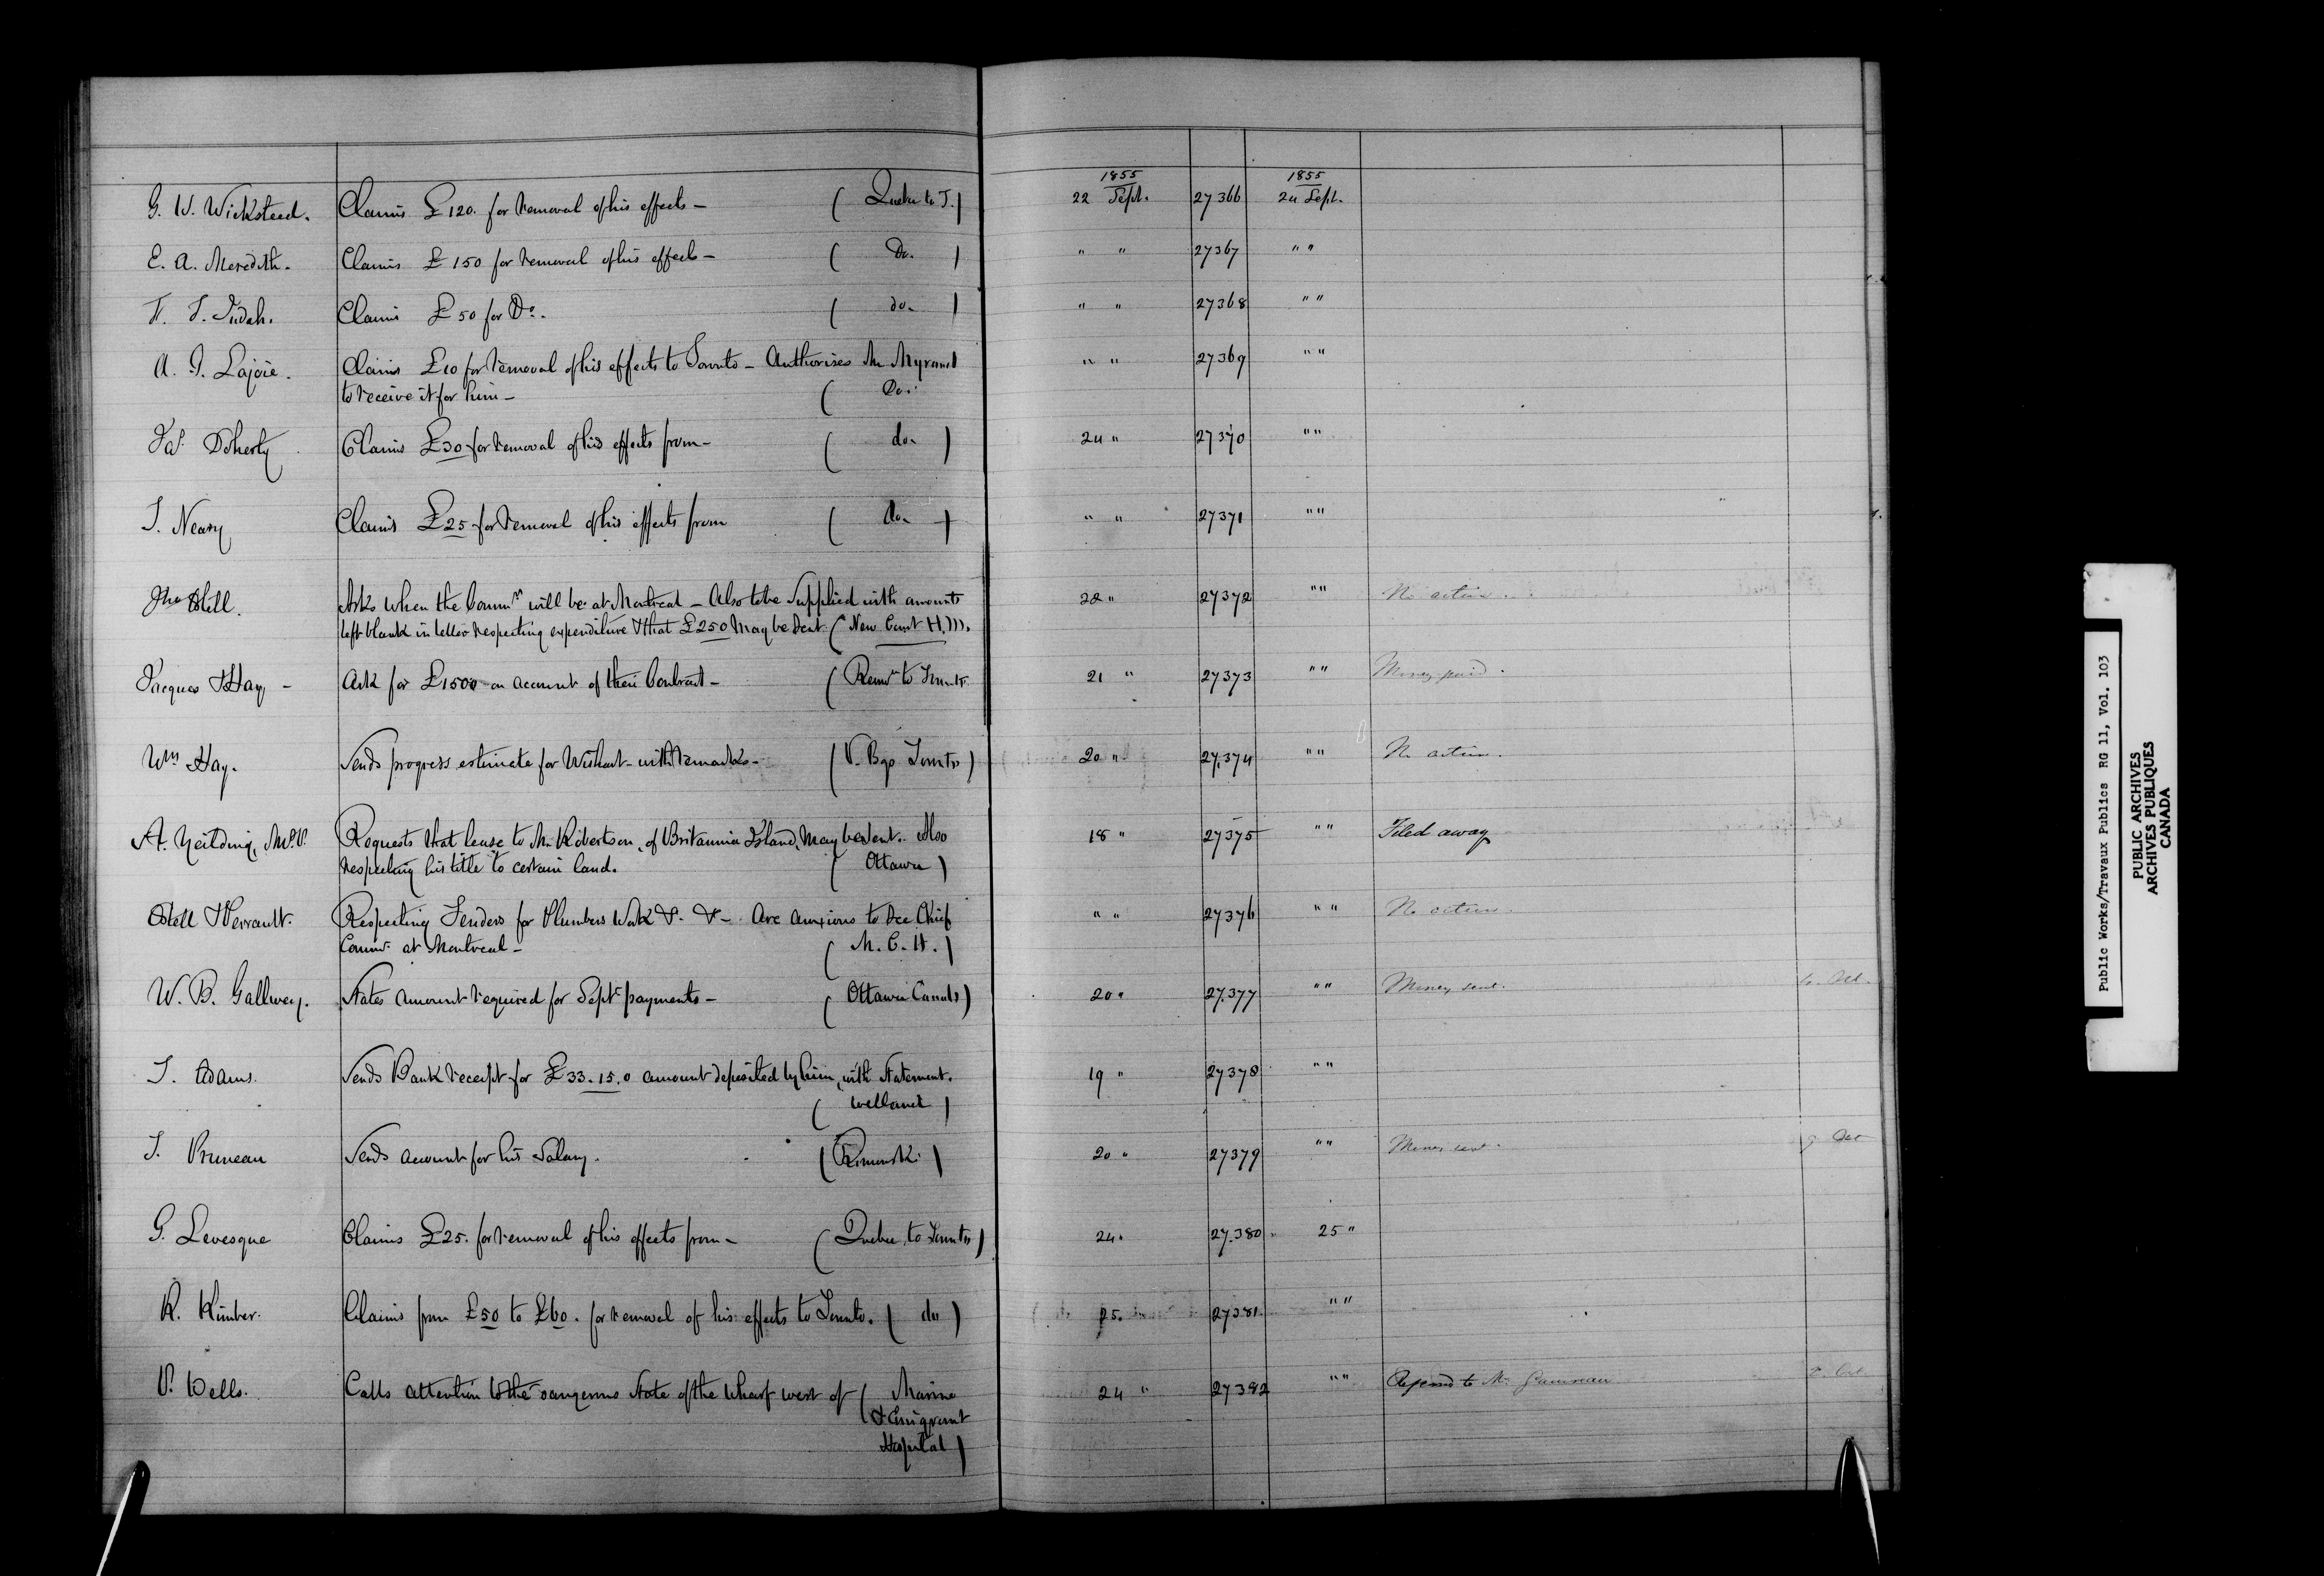 1855 1855
G. W. Wicksteed. Claims £120. for removal of his effects - ( Quebec to T. ) 22 Sept. 27366 24 Sept.
E. A. Meredith. Claims £150 for removal of his effects - ( Do. ) " " 27367 " "
T. S. Judah. Claims £50 for Do. ( do. ) " " 27368 " "
A. G. Lajoie. Claims £10 for removal of his effects to Toronto - Authorises Mr Myrand " " 27369 " "
to receive it for him - ( Do.
Doherty Claims £30 for removal of his effects from - ( do. ) 24 " 27370 " "
J. Neary Claims £25 for removal of his effects from ( do. ) " " 27371 " "
Jno Ostell. Asks when the Commrs will be at Montreal - Also to be supplied with amounts 22 " 27372 " " No action.
left blank in letter respecting expenditure & that £250 may be sent. ( New Court H. M.
Jacques & Hay - Ask for £1500 on account of their Contract - ( Remv to Toronto 21 " 27373 " " Money paid.
Wm Hay. Sends progress estimate for Wishart - with remarks - ( P. Bgs Toronto ) 20 " 27,374 " " No action.
A. , M.P.P. Requests that lease to Mr Robertson, of Britannia Island, may be sent. Also 18 " 27375 " " Filed away
respecting his title to certain land. ( Ottawa )
Ostell & Perrault. Respecting Tenders for Plumbers Work &. &- Are anxious to see Chief " " 27376 " " No action.
Commr at Montreal - ( M. C. H. )
W. B. Gallwey. States amount required for Sept payments - ( Ottawa Canals ) 20 " 27,377 " " Money sent.
J. Adams. Sends Bank receipt for £33.15.0 amount deposited by him, with Statement. 19 " 27378 " "
( Welland )
J. Pruneau Sends account for his Salary. ( Rimouski ) 20 " 27379 " " Money sent. 9. Oct
G. Levesque Claims £25. for removal of his effects from - ( Quebec to Toronto ) 24 " 27.380 25 "
R. Kimber. Claims from £50 to £60. for removal of his effects to Toronto. ( do ) 25. 27381. " "
P. Wells. Calls attention to the dangerous state of the wharf west of ( Marine 24 " 27382 " " to Mr.
& Emigrant
Hospital )
Public Works/Travaux Publics RG 11, Vol. 103
PUBLIC ARCHIVES
ARCHIVES PUBLIQUES
CANADA